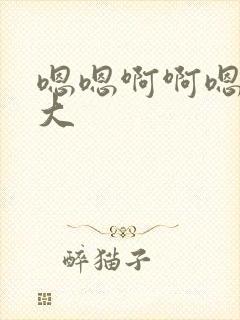 嗯嗯啊啊嗯
大
醉猫子